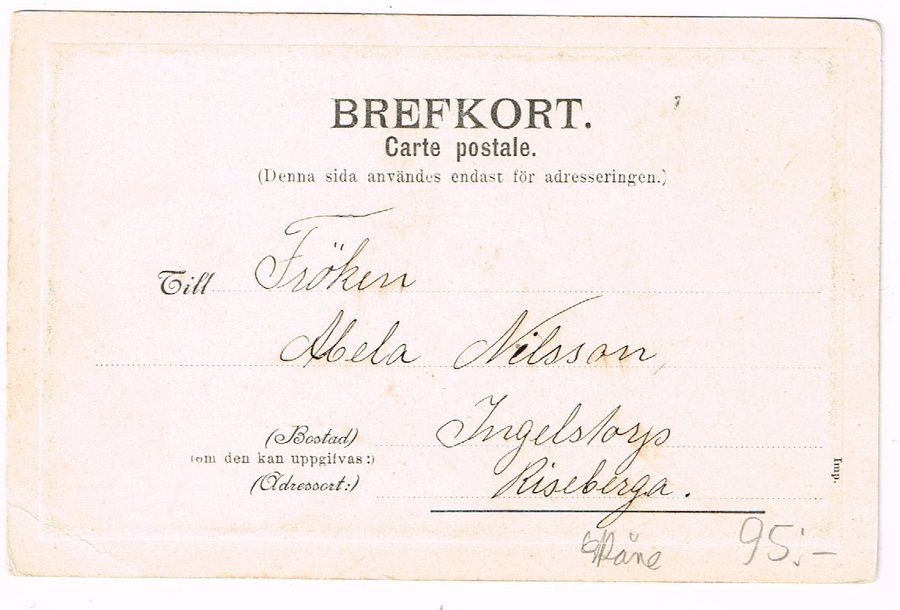 BREFKORT.
Carte postale.
(Denna sida användes endast för adresseringen.)
Till Fröken
Abela Nilsson,
(Bostad) Ingelstorp
(om den kan uppgifvas:)
(Adressort:) Riseberga.
Imp.
Skåne 95:-